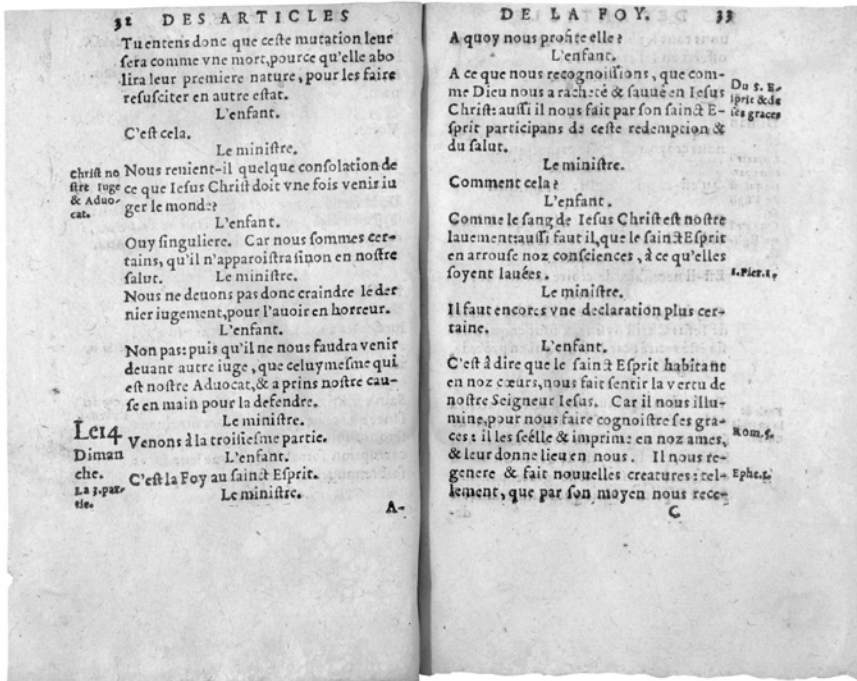 32 DES ARTICLES
Tu entens donc que ceſte mutation leur
ſera comme vne mort, pource qu'elle abo
lira leur premiere nature, pour les faire
reſuſciter en autre eſtat.
L'enfant.
C'eſt cela.
Le miniſtre.
Chriſt no
ſtre Iuge
& Aduo-
cat.
Nous reuient-il quelque conſolation de
ce que Ieſus Chriſt doit vne fois venir iu
ger le monde?
L'enfant.
Ouy ſinguliere. Car nous ſommes cer-
tains, qu'il n'apparoiſtra ſinon en noſtre
ſalut. Le miniſtre.
Nous ne deuons pas donc craindre le der
nier iugement, pour l'auoir en horreur.
L'enfant.
Non pas: puis qu'il ne nous faudra venir
deuant autre iuge, que celuy meſme qui
eſt noſtre Aduocat, & a prins noſtre cau-
ſe en main pour la defendre.
Le miniſtre.
Le 14
Diman
che.
La 3. par-
tie.
Venons à la troiſieſme partie.
L'enfant.
C'eſt la Foy au ſainct Eſprit.
Le miniſtre.
A-
DE LA FOY. 33
A quoy nous profite elle?
L'enfant.
A ce que nous recognoiſſions, que com-
me Dieu nous a racheté & ſauué en Ieſus
Chriſt: auſſi il nous fait par ſon ſainct E-
ſprit participans de ceſte redemption &
du ſalut.
Du S. E-
ſprit & de
ſes graces
Le miniſtre.
Comment cela?
L'enfant.
Comme le ſang de Ieſus Chriſt eſt noſtre
lauement: auſſi faut il, que le ſainct Eſprit
en arrouſe noz conſciences, à ce qu'elles
ſoyent lauées.
1. Pier. 1.
Le miniſtre.
Il faut encores vne declaration plus cer-
taine.
L'enfant.
C'eſt à dire que le ſainct Eſprit habitant
en noz cœurs, nous fait ſentir la vertu de
noſtre Seigneur Ieſus. Car il nous illu-
mine, pour nous faire cognoiſtre ſes gra-
ces: il les ſeélle & imprime en noz ames,
& leur donne lieu en nous. Il nous re-
genere & fait nouuelles creatures: tel-
lement, que par ſon moyen nous rece-
Rom. 5.
Ephe. 1.
C